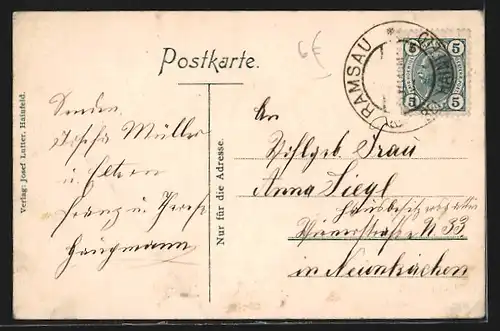 Postkarte.
6€
RAMSAU
5 5
5 5
Verlag: Josef Lutter, Hainfeld.
Nur für die Adresse.
Senden
Josefa Müller
u. Eltern
Franz u.
An
Wohlgeb. Frau
Anna Siegl
Hausbesitzersgattin
N 33
in Neunkirchen